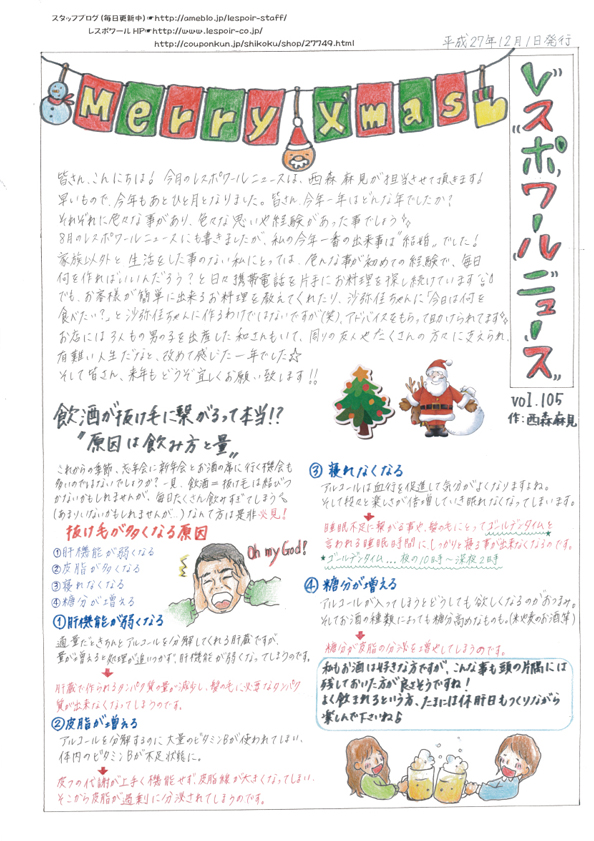 スタッフブログ(毎日更新中)☛http://ameblo.jp/lespoir-staff/
レスポワールHP☛http://www.lespoir-co.jp/
http://couponkun.jp/shikoku/shop/27749.html
平成27年12月1日発行
Merry X'mas
レスポワールニュース
vol.105
作:西森麻見
皆さん、こんにちは! 今月のレスポワールニュースは、西森 麻見が担当させて頂きます!
早いもので、今年もあとひと月となりました。皆さん、今年一年はどんな年でしたか?
それぞれに色々な事があり、色々な思いや経験があった事でしょう
8月のレスポワールニュースにも書きましたが、私の今年一番の出来事は"結婚"でした!
家族以外と生活をした事のない私にとっては、色んな事が初めての経験で、毎日
何を作ればいいんだろう?と日々携帯電話を片手にお料理を探し続けています
でも、お客様が簡単に出来るお料理を教えてくれたり、沙弥佳ちゃんに「今日は何を
食べたい?」と沙弥佳ちゃんに作るわけではないですが(笑)、アドバイスをもらって助けられてます
お店には3人もの男の子を出産した和さんもいて、周りの友人やたくさんの方々に支えられ、
有難い人生だなと、改めて感じた一年でした☆
そして皆さん、来年もどうぞ宜しくお願い致します!!
飲酒が抜け毛に繋がるって本当!?
"原因は飲み方と量"
これからの季節、忘年会に新年会とお酒の席に行く機会も
多いのではないでしょうか?一見、飲酒=抜け毛は結びつ
かないかもしれませんが、毎日たくさん飲みすぎてしまう
(あまりいないかもしれませんが…)なんて方は是非必見!
抜け毛が多くなる原因
①肝機能が弱くなる
②皮脂が多くなる
③寝れなくなる
④糖分が増える
Oh my God!
①肝機能が弱くなる
適量だときちんとアルコールを分解してくれる肝臓ですが、
量が増えると処理が追いつかず、肝機能が弱くなってしまうのです。
肝臓で作られるタンパク質の量が減少し、髪の毛に必要なタンパク
質が出来なくなってしまうのです。
②皮脂が増える
アルコールを分解するのに大量のビタミンBが使われてしまい、
体内のビタミンBが不足状態に。
皮フの代謝が上手く機能せず、皮脂線が大きくなってしまい、
そこから皮脂が過剰に分泌されてしまうのです。
③寝れなくなる
アルコールは血行を促進して気分がよくなりますよね。
そして段々と楽しさが倍増していき眠れなくなってしまいます。
睡眠不足に繋がる事や、髪の毛にとってゴールデンタイムと
言われる睡眠時間にしっかりと寝る事が出来なくなるのです。
★ゴールデンタイム…夜の10時〜深夜2時
④糖分が増える
アルコールが入ってしまうとどうしても欲しくなるのがおつまみ。
そしてお酒の種類においても糖分高めなものも。(米や麦のお酒等)
糖分が皮脂の分泌を増やしてしまうのです。
私もお酒は好きな方ですが、こんな事も頭の片隅には
残しておいた方が良さそうですね!
よく飲まれるという方、たまには休肝日もつくりながら
楽しんで下さいね♪